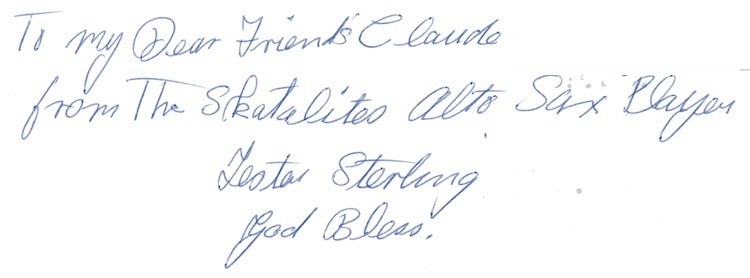 To my Dear Friends Claude
from The Skatalites Alto Sax Player
Lester Sterling
God Bless.